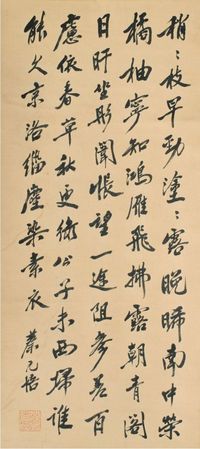 梢〻枝早勁塗〻露晚晞南中榮
橘柚寧知鴻雁飛拂露朝青閣
日旰坐彤闈悵望一途阻參差百
慮依春草秋更綠公子未西歸誰
能久京洛緇塵染素衣 蔡元培